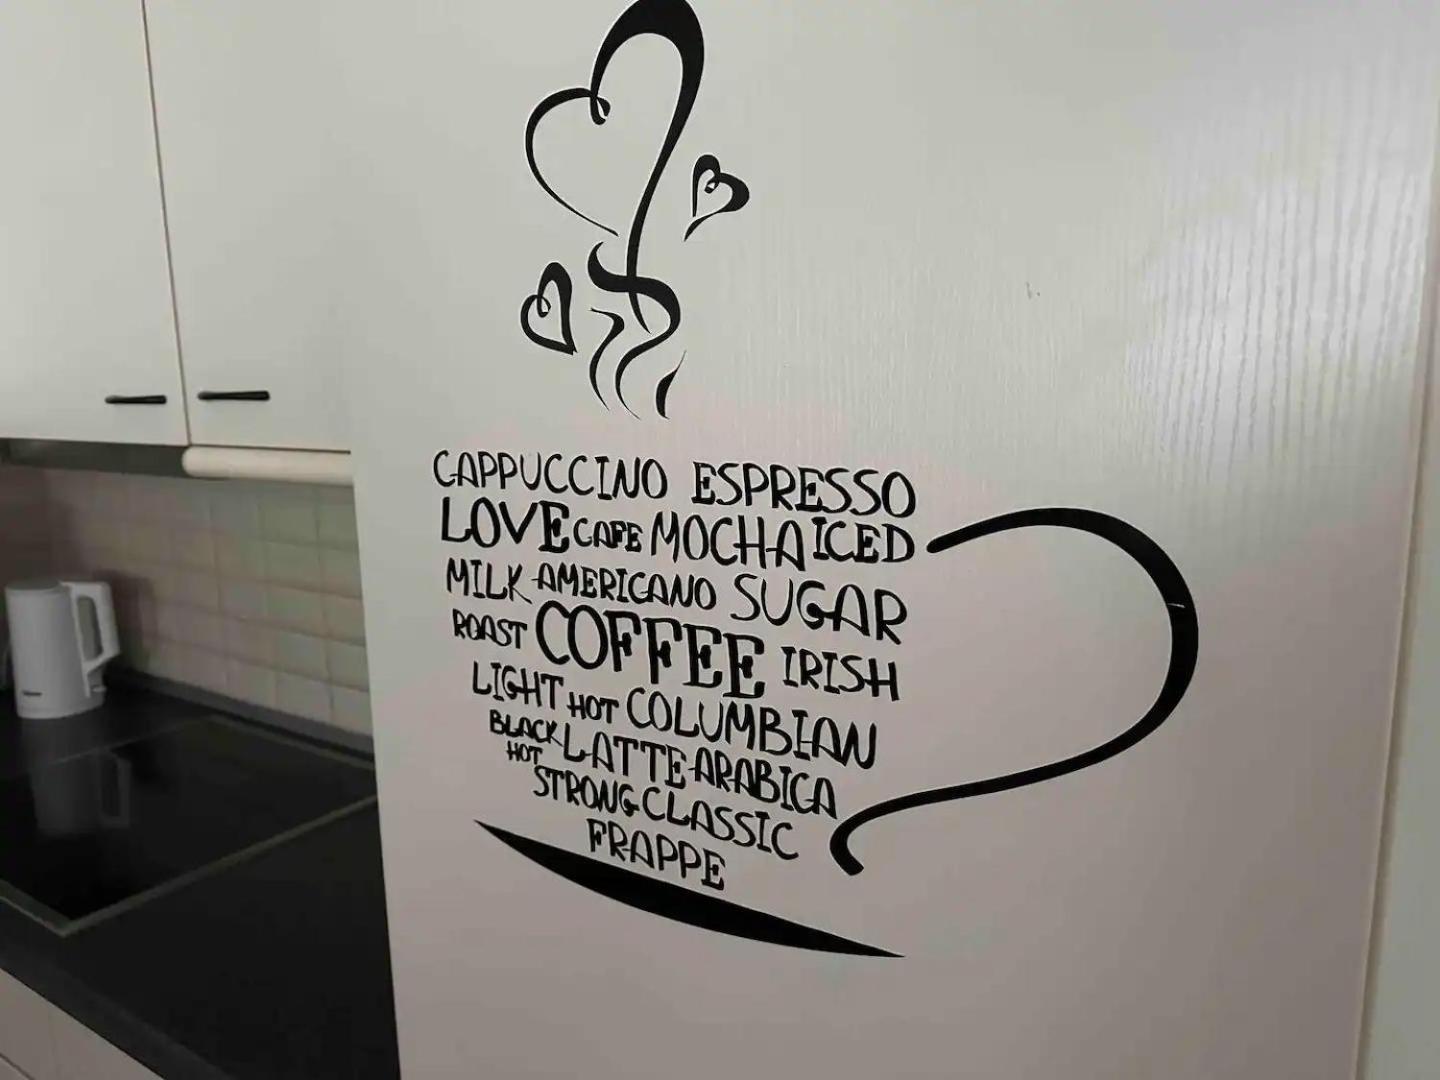 CAPPUCCINO ESPRESSO
LOVE CAFE MOCHA ICED
MILK AMERICANO SUGAR
ROAST COFFEE IRISH
LIGHT HOT COLUMBIAN
BLACK LATTE ARABICA
HOT
STRONG CLASSIC
FRAPPE